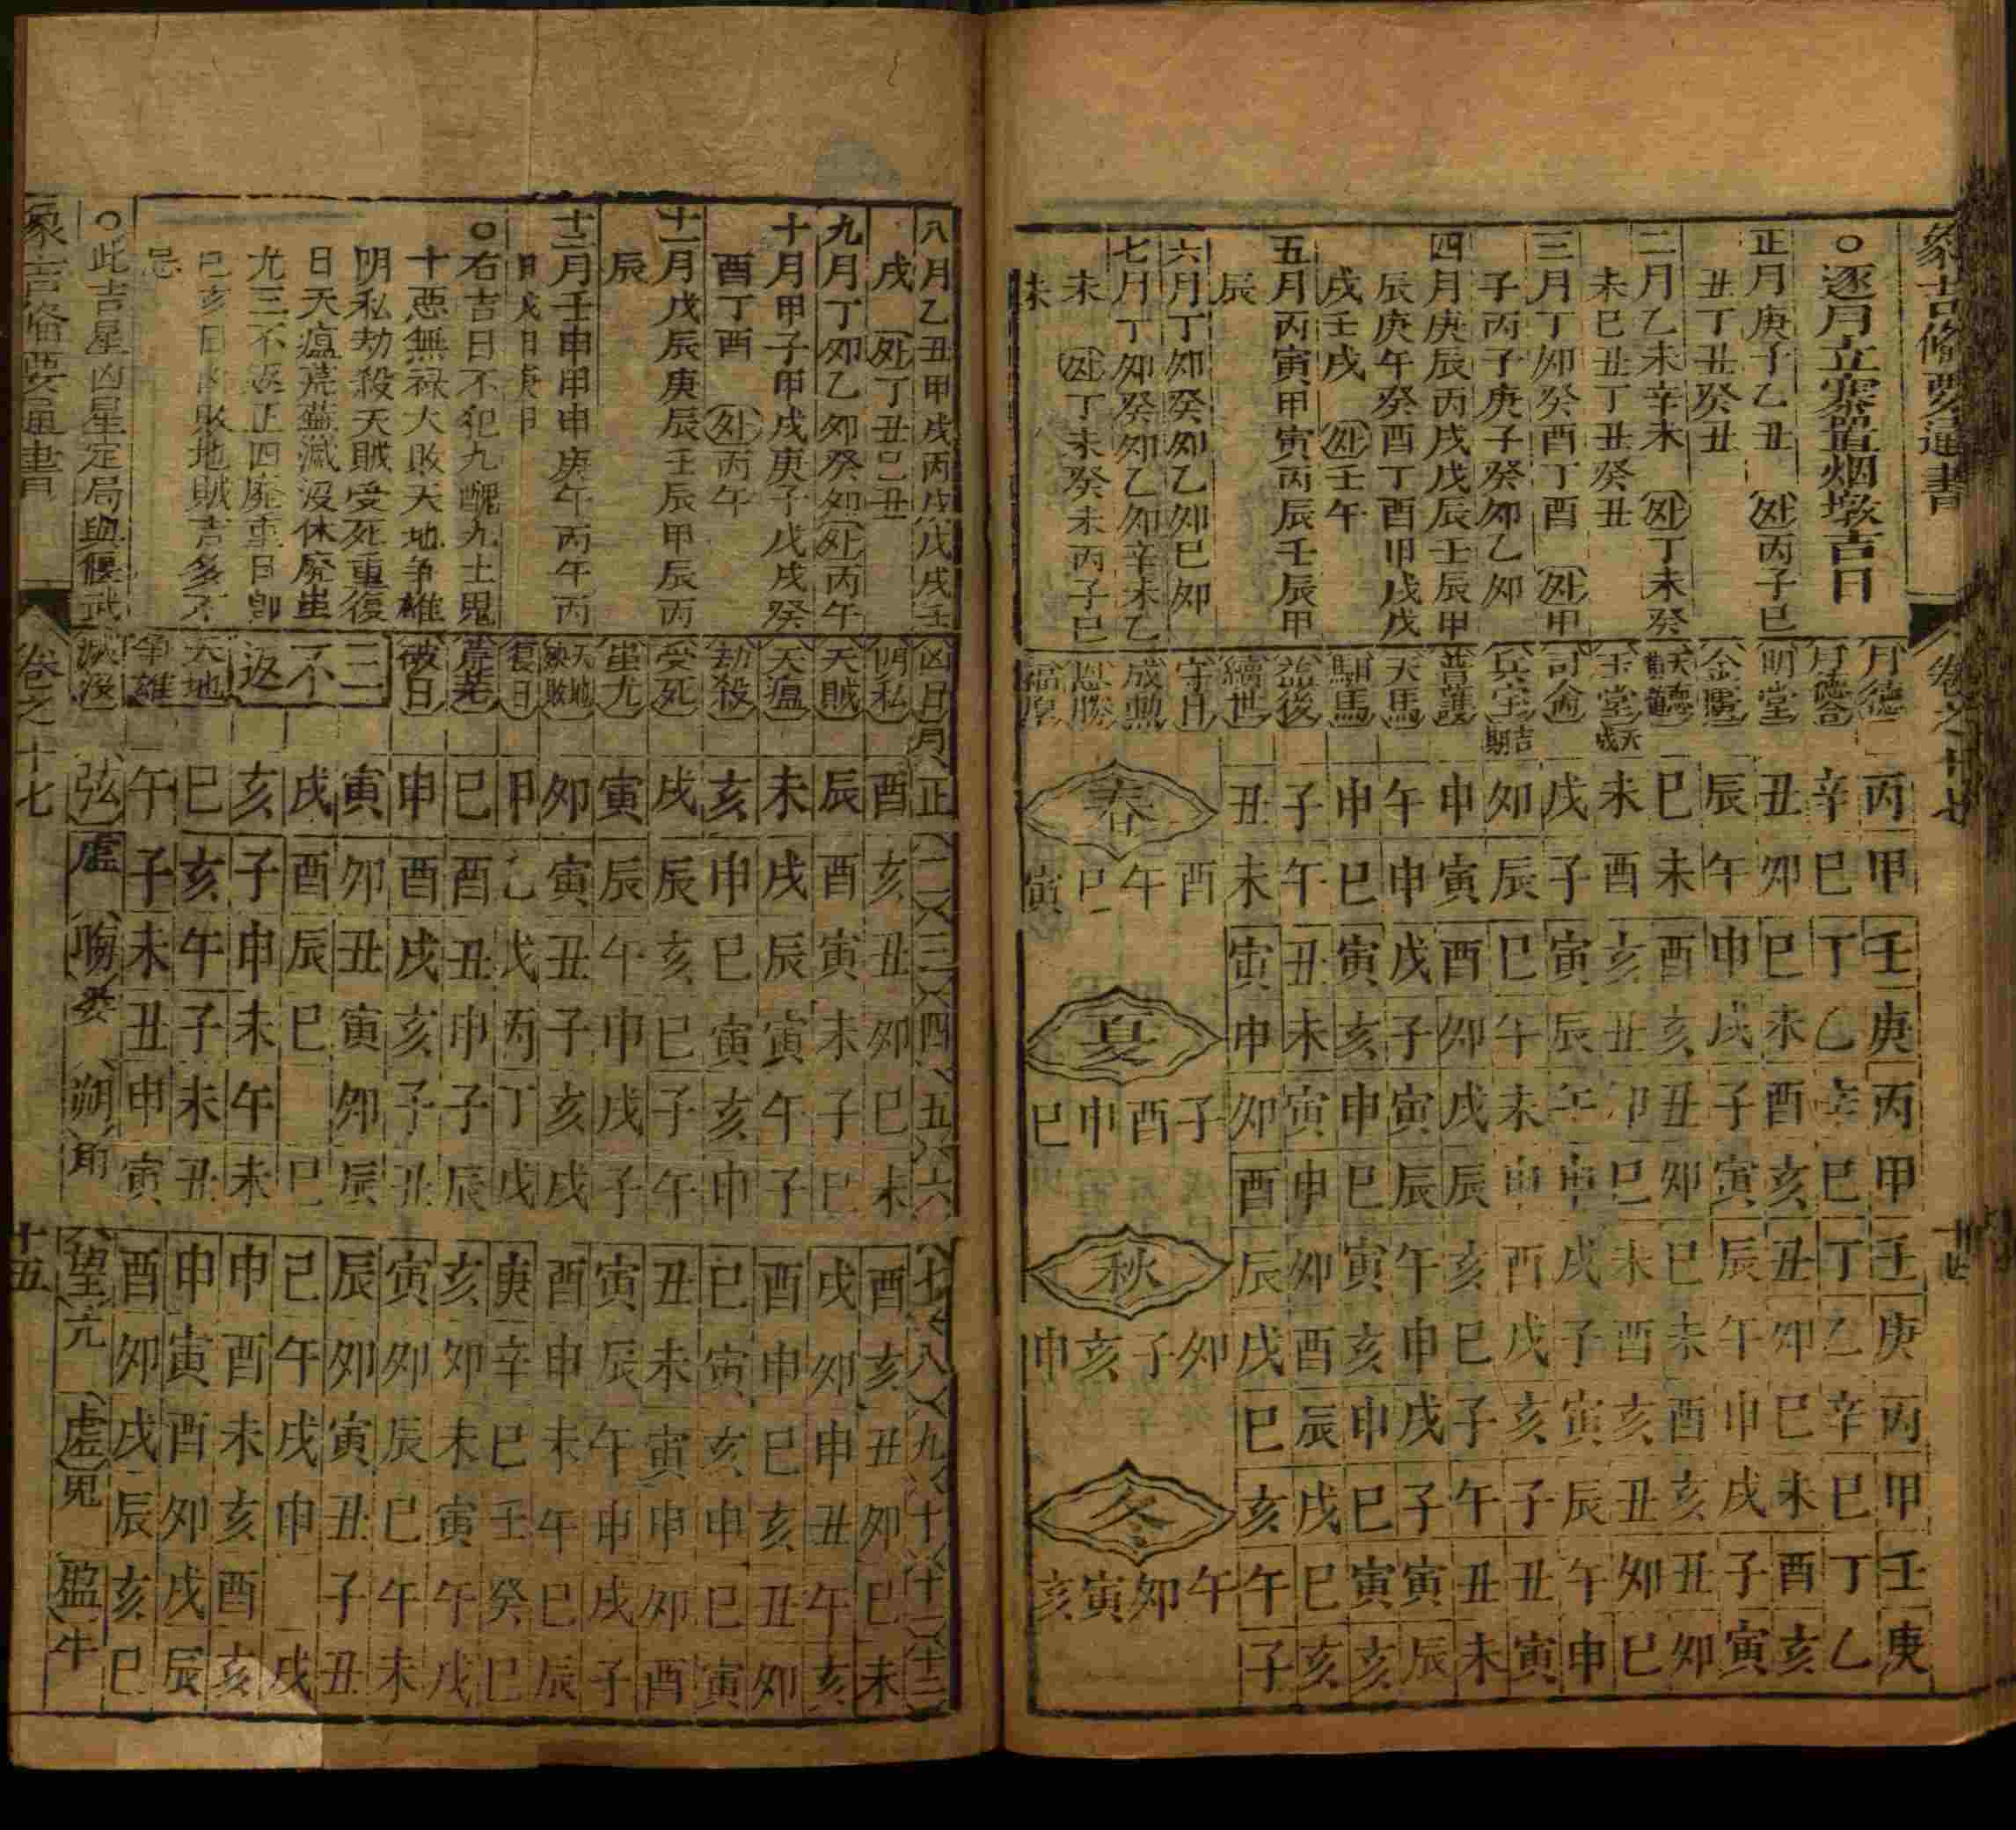 象吉備要通書
卷之十七
十四
○逐月立寨置烟墩吉日
正月庚子乙丑 外丙子巳
丑丁丑癸丑
二月乙未辛未 外丁未癸
未巳丑丁丑癸丑
三月丁卯癸酉丁酉 外甲
子丙子庚子癸卯乙卯
四月庚辰丙戌戊辰壬辰甲
辰庚午癸酉丁酉甲戌戊
戌壬戌 外壬午
五月丙寅甲寅丙辰壬辰甲
辰
六月丁卯癸卯乙卯巳卯
七月丁卯癸卯乙卯辛未乙
未 外丁未癸未丙子巳
未
月德 丙甲壬庚丙甲壬庚丙甲壬庚
月德合 辛巳丁乙辛巳丁乙辛巳丁乙
明堂 丑卯巳未酉亥丑卯巳未酉亥
金匱 辰午申戌子寅辰午申戌子寅
天德黃道 巳未酉亥丑卯巳未酉亥丑卯
玉堂天成 未酉亥丑卯巳未酉亥丑卯巳
司命 戌子寅辰午申戌子寅辰午申
兵寶吉期 卯辰巳午未申酉戌亥子丑寅
普護 申寅酉卯戌辰亥巳子午丑未
天馬 午申戌子寅辰午申戌子寅辰
馹馬 申巳寅亥申巳寅亥申巳寅亥
益後 子午丑未寅申卯酉辰戌巳亥
續世 丑未寅申卯酉辰戌巳亥午子
春 夏 秋 冬
守日 酉 子 卯 午
成勳 午 酉 子 卯
恩勝 巳 申 亥 寅
福厚 寅 巳 申 亥
八月乙丑甲戌丙戌戊戌壬
戌 外丁丑己丑
九月丁卯乙卯癸卯 外丙午
十月甲子甲戌庚子戊戌癸
酉丁酉 外丙午
十一月戊辰庚辰壬辰甲辰丙
辰
十二月壬申甲申庚午丙午丙
○右吉日不犯九醜九土鬼
十惡無祿大敗天地争雄
阴私劫殺天賊受死重復
日天瘟荒蕪滅没休廢蚩
尤三不返正四廢重日卽
巳亥日 敗地賊吉多不
忌
○此吉星凶星定局與偃武
凶日 月 正二三四五六七八九十十一十二
阴私 酉亥丑卯巳未酉亥丑卯巳未
天賊 辰酉寅未子巳戌卯申丑午亥
天瘟 未戌辰寅午子酉申巳亥丑卯
劫殺 亥申巳寅亥申巳寅亥申巳寅
受死 戌辰亥巳子午丑未寅申卯酉
蚩尤 寅辰午申戌子寅辰午申戌子
天地殃敗 卯寅丑子亥戌酉申未午巳辰
復日 甲乙戊丙丁戊庚辛巳壬癸巳
荒蕪 巳酉丑申子辰亥卯未寅午戌
破日 申酉戌亥子丑寅卯辰巳午未
三不返 寅卯丑寅卯辰辰卯寅丑子丑
戌酉辰巳 巳己午戌申 戌
亥子申未午未申酉未亥酉亥
天地争雄 巳亥午子未丑申寅酉卯戌辰
午子未丑申寅酉卯戌辰亥巳
滅没 弦虛 晦婁 朔角 望亢 虛鬼 盈牛
象吉備要通書
卷之十七
十五